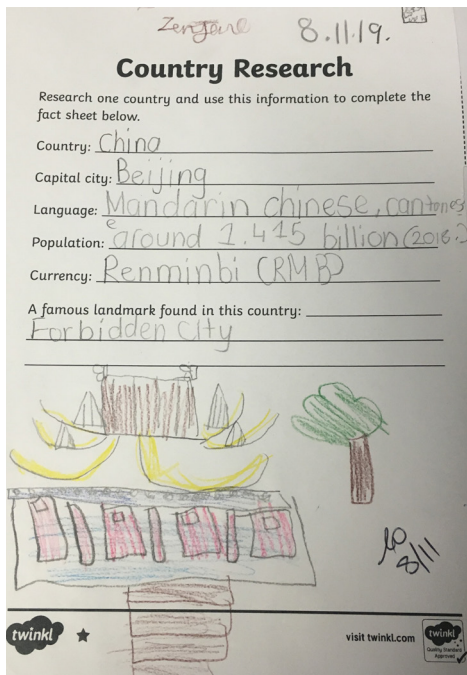 8.11.19.
Country Research
Research one country and use this information to complete the
fact sheet below.
Country: China
Capital city: Beijing
Language: Mandarin chinese, cantones
e
Population: around 1.415 billion (2018.)
Currency: Renminbi (RMB)
A famous landmark found in this country:
Forbidden City
8/11
twinkl
visit twinkl.com
twinkl
Quality Standard
Approved